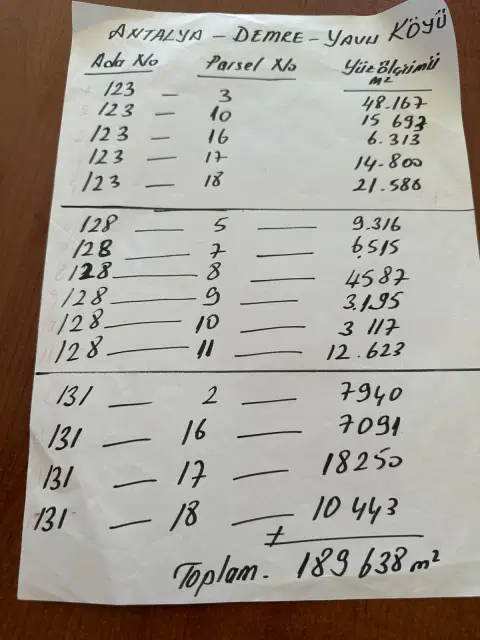 ANTALYA - DEMRE - YAVU KÖYÜ
Ada No Parsel No Yüzölçümü
m²
123 - 3 48.167
123 - 10 15 697
123 - 16 6.313
123 - 17 14.800
123 - 18 21.586
128 - 5 - 9.316
128 - 7 - 6.515
128 - 8 - 4587
128 - 9 - 3.195
128 - 10 - 3 117
128 - 11 - 12.623
131 - 2 - 7940
131 - 16 - 7091
131 - 17 - 18250
131 - 18 - 10 443
+
Toplam. 189 638 m²